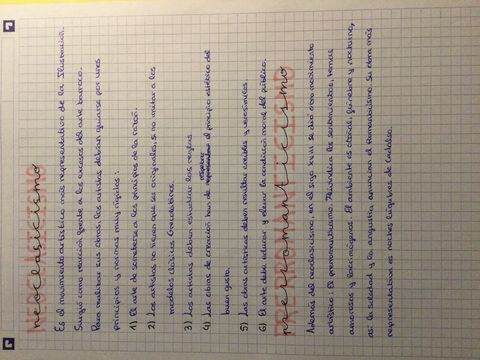 NEOCLASICISMO
neoclasicismo
Es el movimiento artístico más representativo de la Ilustración.
Surgió como reacción frente a los excesos del arte barroco.
Para realizar sus obras, los artistas debían guiarse por unos
principios y normas muy rígidas:
1) El arte se someterá a los principios de la razón.
2) Los artistas no tienen que ser originales, si no imitar a los
modelos clásicos grecolatinos
3) Los artistas deben estudiar las reglas
4) Las obras de creación han de respetar el principio estético del
buen gusto.
5) Las obras artísticas deben resultar creíbles y verosímiles
6) El arte debe educar y elevar la condición moral del público.
PRERROMANTICISMO
prerromanticismo
Además del neoclasicismo, en el siglo XVIII se dió otro movimiento
artístico: El prerromanticismo. Reivindica los sentimientos, temas
amorosos y lacrimógenos. El ambiente es otoñal, fúnebre y nocturno,
así la soledad y la angustia, anuncian el Romanticismo. Su obra más
representativa es noches lúgubres de Cadalso.